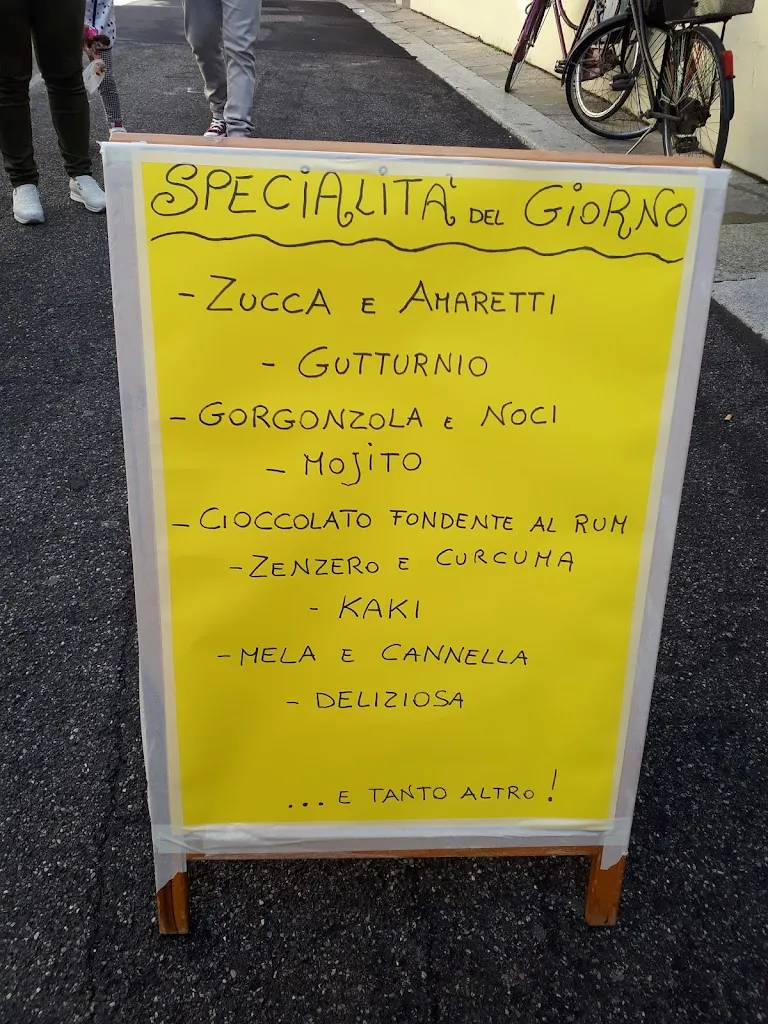 SPECIALITA' DEL GIORNO
- ZUCCA E AMARETTI
- GUTTURNIO
- GORGONZOLA E NOCI
- MOJITO
- CIOCCOLATO FONDENTE AL RUM
- ZENZERO E CURCUMA
- KAKI
- MELA E CANNELLA
- DELIZIOSA
... E TANTO ALTRO!